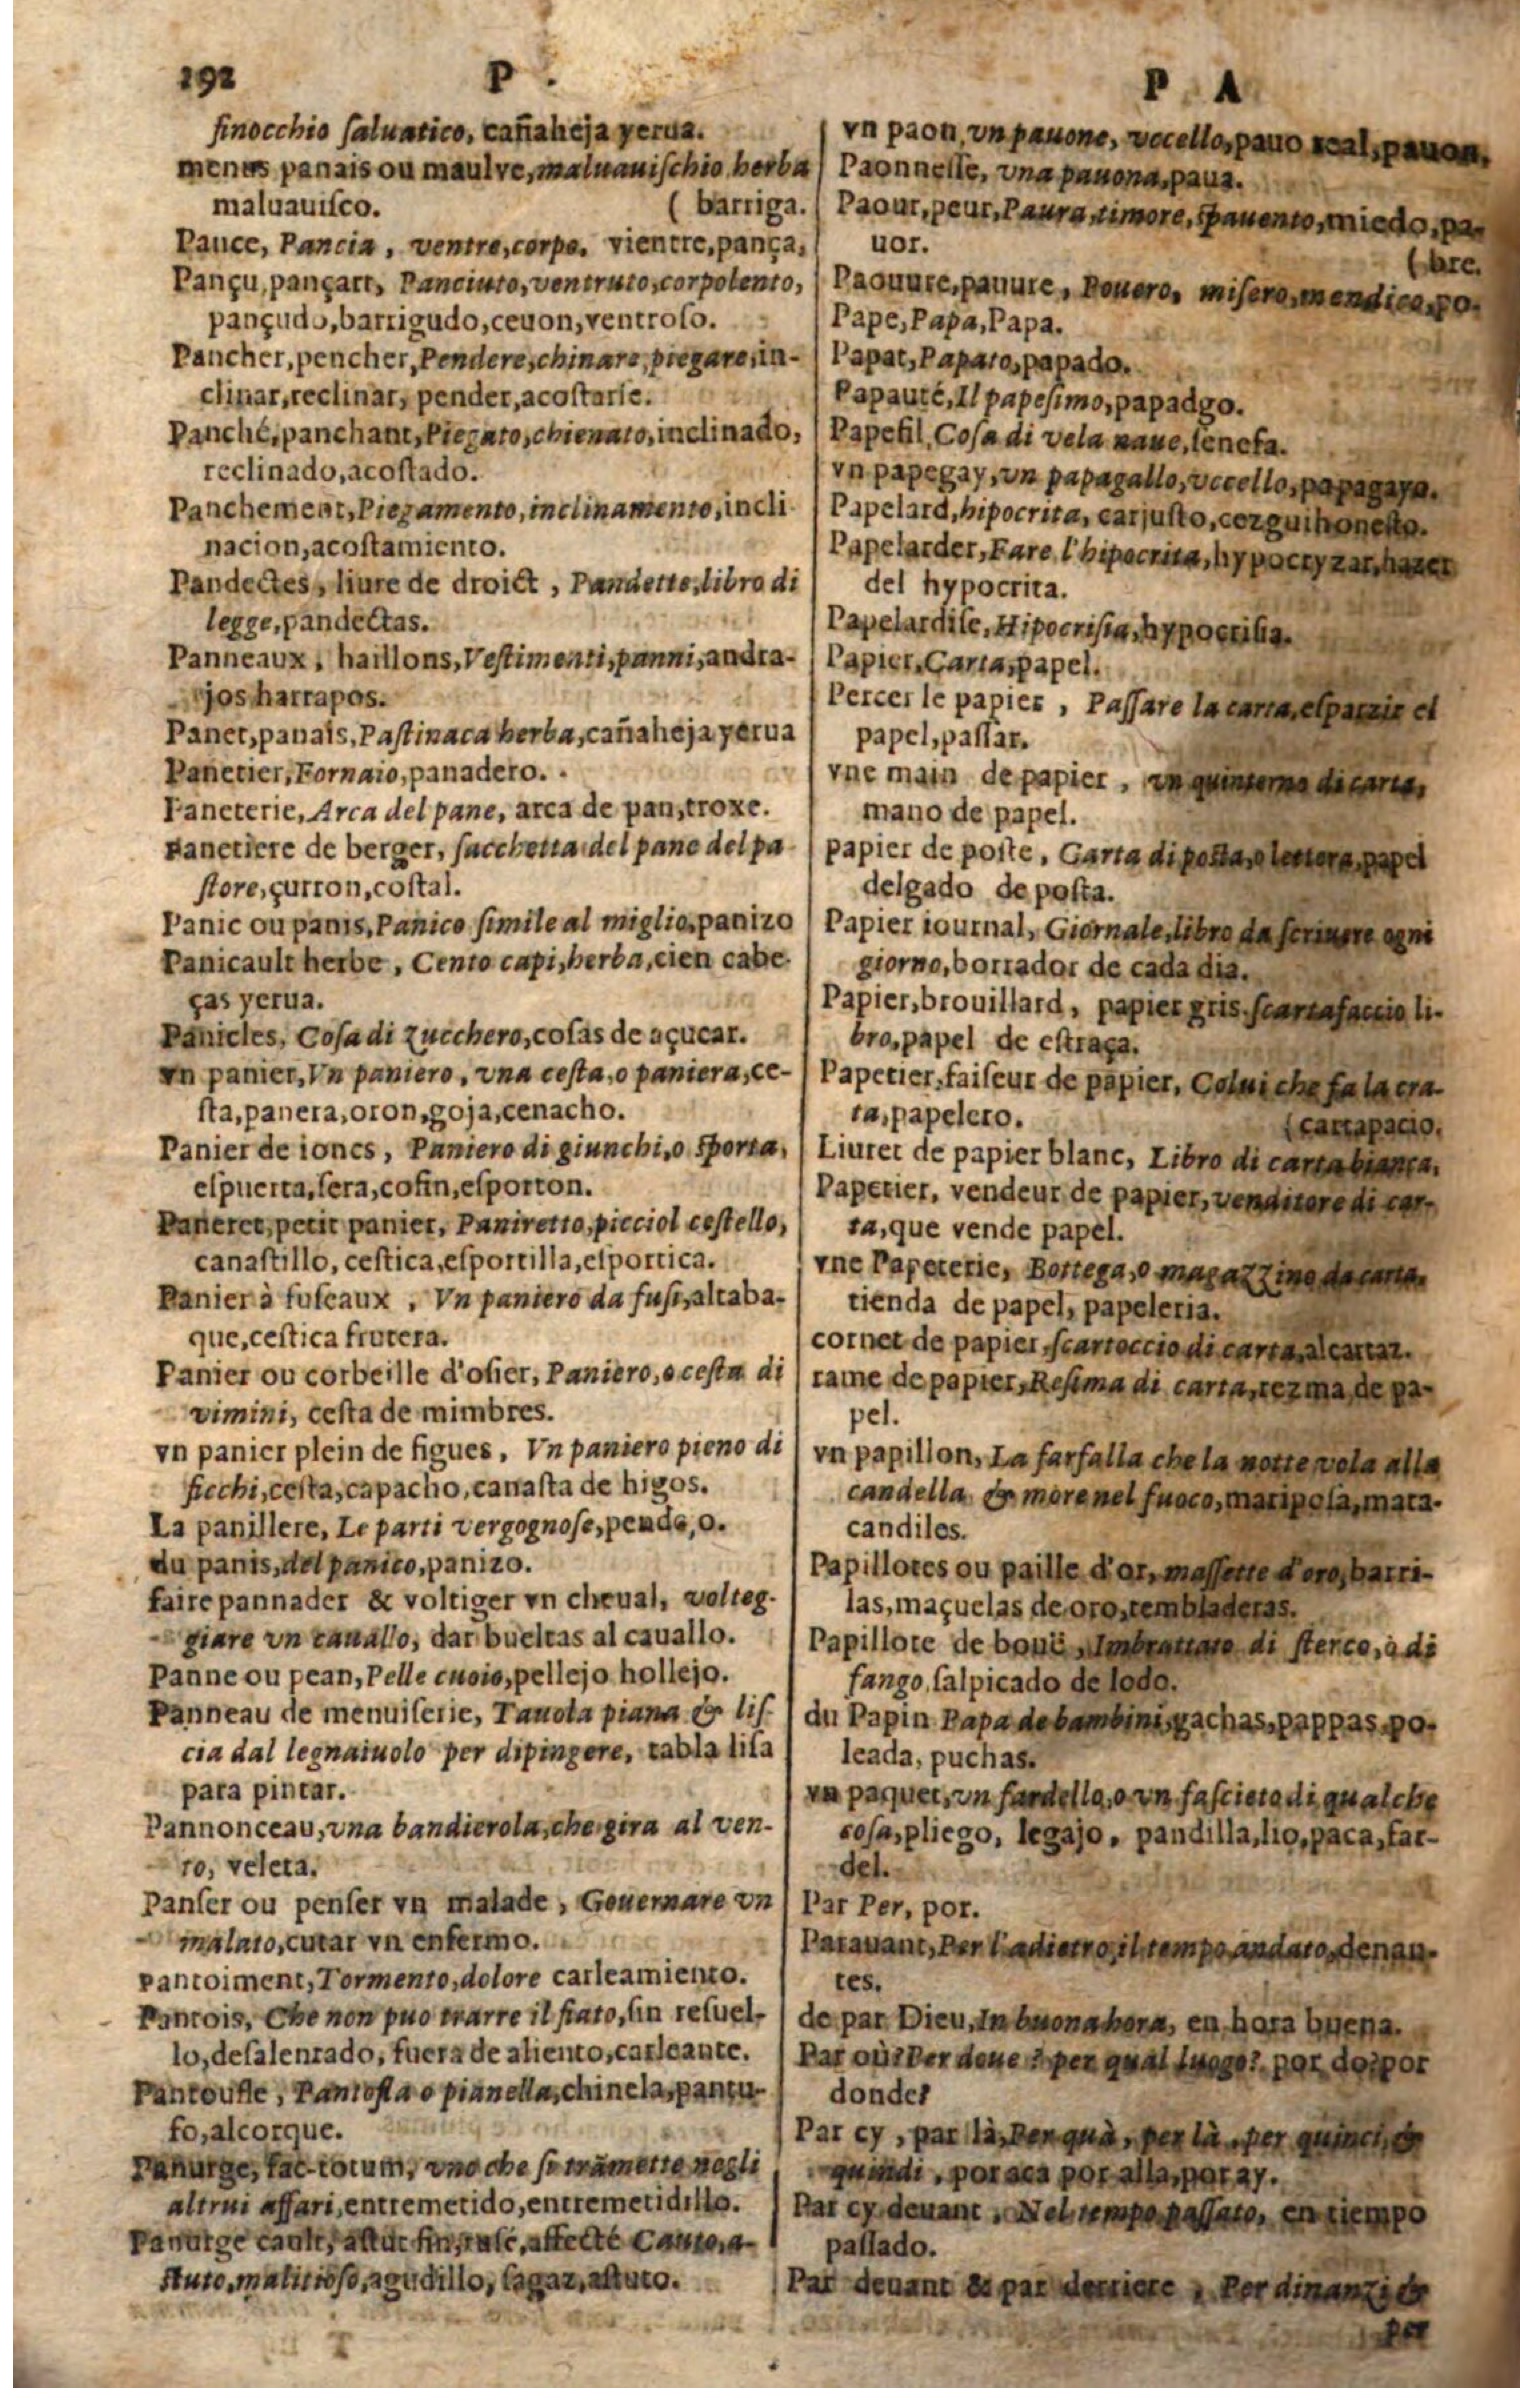 192 P .
finocchio ſaluatico, cañaheja yerua.
menus panais ou maulve, maluauiſchio herba
maluauiſco. ( barriga.
Pance, Pancia, ventre, corpo, vientre, pança,
Pançu, pançart, Panciuto, ventruto, corpolento,
pançudo, barrigudo, ceuon, ventroſo.
Pancher, pencher, Pendere, chinare, piegare, in-
clinar, reclinar, pender, acoſtarſe.
Panché, panchant, Piegato, chienato, inclinado,
reclinado, acoſtado.
Panchement, Piegamento, inclinamento, incli
nacion, acoſtamiento.
Pandectes, liure de droict, Pandette, libro di
legge, pandectas.
Panneaux, haillons, Veſtimenti, panni, andra-
jos harrapos.
Panet, panais, Paſtinaca herba, cañaheja yerua
Panetier, Fornaio, panadero.
Paneterie, Arca del pane, arca de pan, troxe.
panetiere de berger, ſacchetta del pane del pa
ſtore, çurron, coſtal.
Panic ou panis, Panico ſimile al miglio, panizo
Panicault herbe, Cento capi, herba, cien cabe-
ças yerua.
Panicles, Coſa di zucchero, coſas de açucar.
vn panier, Vn paniero, vna ceſta, o paniera, ce-
ſta, panera, oron, goja, cenacho.
Panier de ioncs, Paniero di giunchi, o ſporta,
eſpuerta, ſera, cofin, eſporton.
Paneret, petit panier, Paniretto, picciol ceſtello,
canaſtillo, ceſtica, eſportilla, eſportica.
Panier à fuſeaux, Vn paniero da fuſi, altaba-
que, ceſtica frutera.
Panier ou corbeille d'oſier, Paniero, o ceſta di
vimini, ceſta de mimbres.
vn panier plein de figues, Vn paniero pieno di
ficchi, ceſta, capacho, canaſta de higos.
La panillere, Le parti vergognoſe, pende, o.
du panis, del panico, panizo.
faire pannader & voltiger vn cheual, volteg-
giare vn cauallo, dar bueltas al cauallo.
Panne ou pean, Pelle cuoio, pellejo hollejo.
Panneau de menuiſerie, Tauola piana & liſ-
cia dal legnaiuolo per dipingere, tabla liſa
para pintar.
Pannonceau, vna bandierola, che gira al ven-
to, veleta.
Panſer ou penſer vn malade, Gouernare vn
malato, curar vn enfermo.
pantoiment, Tormento, dolore carleamiento.
Pantois, Che non puo trarre il fiato, ſin reſuel-
lo, deſalentado, fuera de aliento, carleante.
Pantoufle, Pantofla o pianella, chinela, pantu-
fo, alcorque.
Panurge, fac-totum, vno che ſi trāmette negli
altrui affari, entremetido, entremetidillo.
Panurge cault, aſtut fin, ruſé, affecté Cauto, a-
ſtuto, malitioſo, agudillo, ſagaz, aſtuto.
P A
vn paon, vn pauone, vccello, pauo real, pauon,
Paonneſſe, vna pauona, paua.
Paour, peur, Paura, timore, ſpauento, miedo, pa-
uor. ( bre.
Paouure, pauure, Pouero, miſero, mendico, po-
Pape, Papa, Papa.
Papat, Papato, papado.
Papauté, Il papeſimo, papadgo.
Papefil, Coſa di vela naue, ſenefa.
vn papegay, vn papagallo, vccello, papagayo.
Papelard, hipocrita, carjuſto, cezguihoneſto.
Papelarder, Fare l'hipocrita, hypocryzar, hazer
del hypocrita.
Papelardiſe, Hipocriſia, hypocriſia.
Papier, Carta, papel.
Percer le papier, Paſſare la carta, eſparzir el
papel, paſſar.
vne main de papier, vn quinterno di carta,
mano de papel.
papier de poſte, Carta di poſta, o lettera, papel
delgado de poſta.
Papier iournal, Giornale, libro da ſcriuere ogni
giorno, borrador de cada dia.
Papier, brouillard, papier gris, ſcartafaccio li-
bro, papel de eſtraça.
Papetier, faiſeur de papier, Colui che fa la cra-
ta, papelero. ( cartapacio.
Liuret de papier blanc, Libro di carta bianca,
Papetier, vendeur de papier, venditore di car-
ta, que vende papel.
vne Papeterie, Bottega, o magazzino da carta,
tienda de papel, papeleria.
cornet de papier, ſcartoccio di carta, alcartaz.
rame de papier, Reſima di carta, rezma de pa-
pel.
vn papillon, La farfalla che la notte vola alla
candella & more nel fuoco, maripoſa, mata-
candiles.
Papillotes ou paille d'or, maſſette d'oro, barri-
las, maçuelas de oro, tembladeras.
Papillote de bouë, Imbrattato di ſterco, ò di
fango, ſalpicado de lodo.
du Papin Papa de bambini, gachas, pappas, po-
leada, puchas.
vn paquet, vn fardello, o vn faſcieto di qualche
coſa, pliego, legajo, pandilla, lio, paca, far-
del.
Par Per, por.
Parauant, Per l'adietro, il tempo andato, denan-
tes.
de par Dieu, In buona hora, en hora buena.
Par où? Per doue? per qual luogo? por do? por
donde?
Par cy, par là, Per quà, per là, per quinci, &
quindi, por aca por alla, por ay.
Par cy deuant, Nel tempo paſſato, en tiempo
paſſado.
Par deuant & par derriere, Per dinanzi &
per